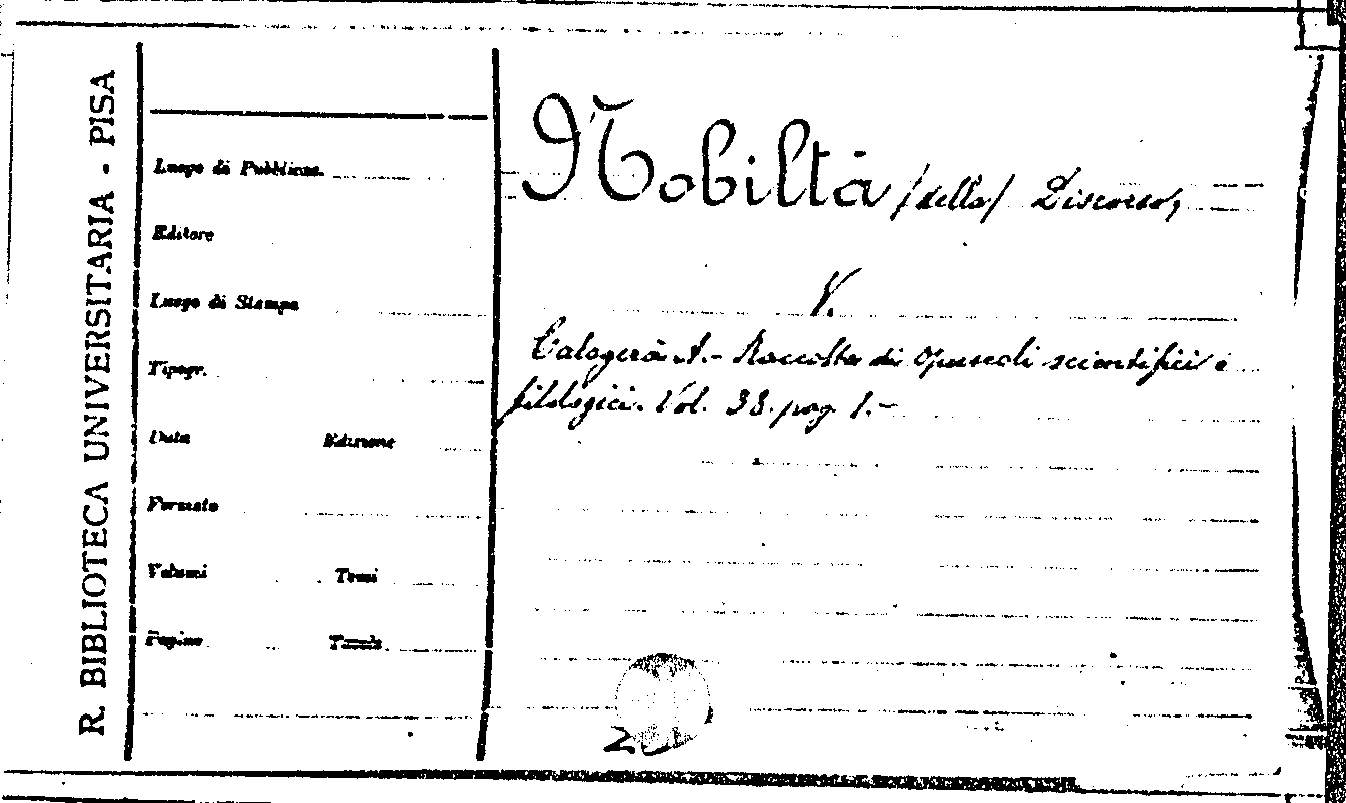 R. BIBLIOTECA UNIVERSITARIA - PISA
Luogo di Pubblicaz.
Editore
Luogo di Stampa
Tipogr.
Data Edizione
Formato
Volumi Tomi
Pagine Tavole
Nobiltà /della/ Discorso,
V.
Calogerà A. - Raccolta di Opuscoli scientifici e
filologici. Vol. 33. pag. 1. -